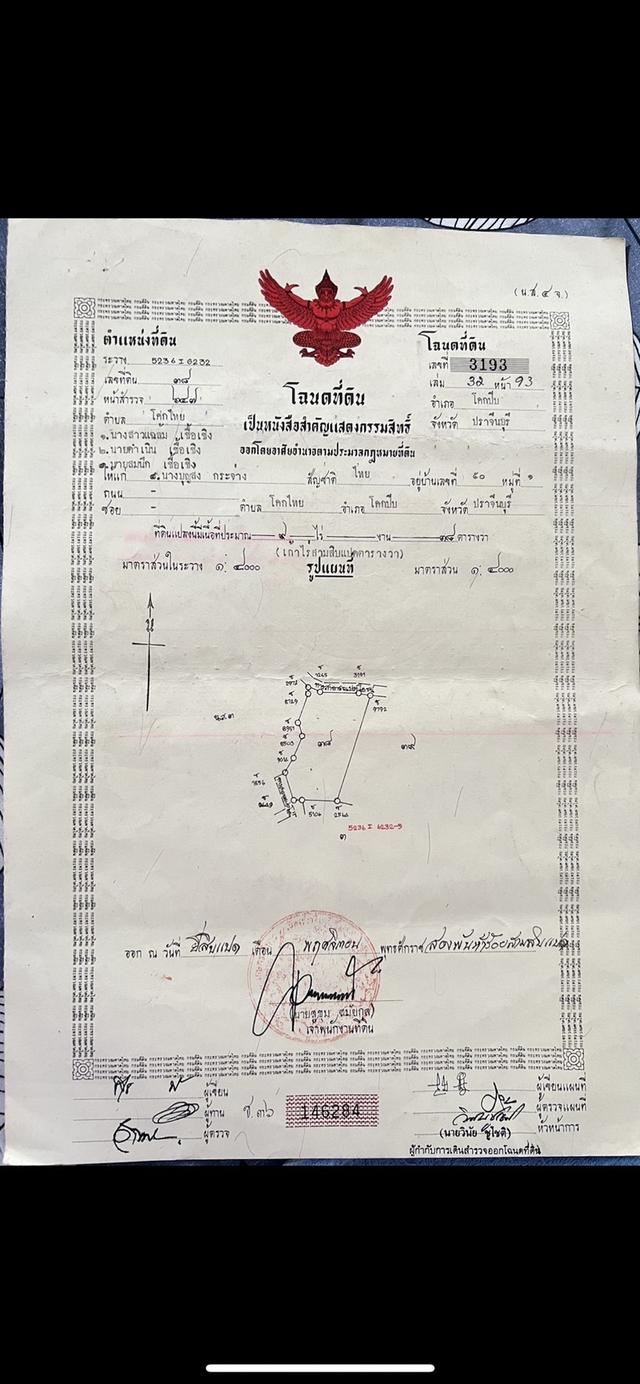 (น.ส. ๔ จ.)
ตำแหน่งที่ดิน
โฉนดที่ดิน
ระวาง 5236 I 6232
เลขที่ 3193
เลขที่ดิน ๓๘
เล่ม 32 หน้า 93
หน้าสำรวจ
อำเภอ โคกปีบ
ตำบล โคกไทย
จังหวัด ปราจีนบุรี
โฉนดที่ดิน
เป็นหนังสือสำคัญแสดงกรรมสิทธิ์
ออกโดยอาศัยอำนาจตามประมวลกฎหมายที่ดิน
๑.นางสาวแฉล้ม เชื้อเชิง
๒.นายดำเนิน เชื้อเชิง
๓.นายสมนึก เชื้อเชิง
ให้แก่ ๔.นางบุญส่ง กระจ่าง สัญชาติ ไทย อยู่บ้านเลขที่ ๖๐ หมู่ที่ ๑
ถนน -
ซอย - ตำบล โคกไทย อำเภอ โคกปีบ จังหวัด ปราจีนบุรี
ที่ดินแปลงนี้มีเนื้อที่ประมาณ ๙ ไร่ - งาน ๓๘ ตารางวา
(เก้าไร่สามสิบแปดตารางวา)
มาตราส่วนในระวาง ๑: ๔๐๐๐ รูปแผนที่ มาตราส่วน ๑: ๔๐๐๐
น
น.ส.๓
๓๘
๓๙
5236 I 6232-3
๓
ออก ณ วันที่ ยี่สิบแปด เดือน พฤศจิกายน พุทธศักราช สองพันห้าร้อยสามสิบแปด
เจ้าพนักงานที่ดิน
ผู้เขียน
ผู้ทาน
ผู้ตรวจ
ช.๓๖
146284
ผู้เขียนแผนที่
ผู้ตรวจแผนที่
หัวหน้าการ
(นายวินัย ชูโชติ)
ผู้กำกับการเดินสำรวจออกโฉนดที่ดิน